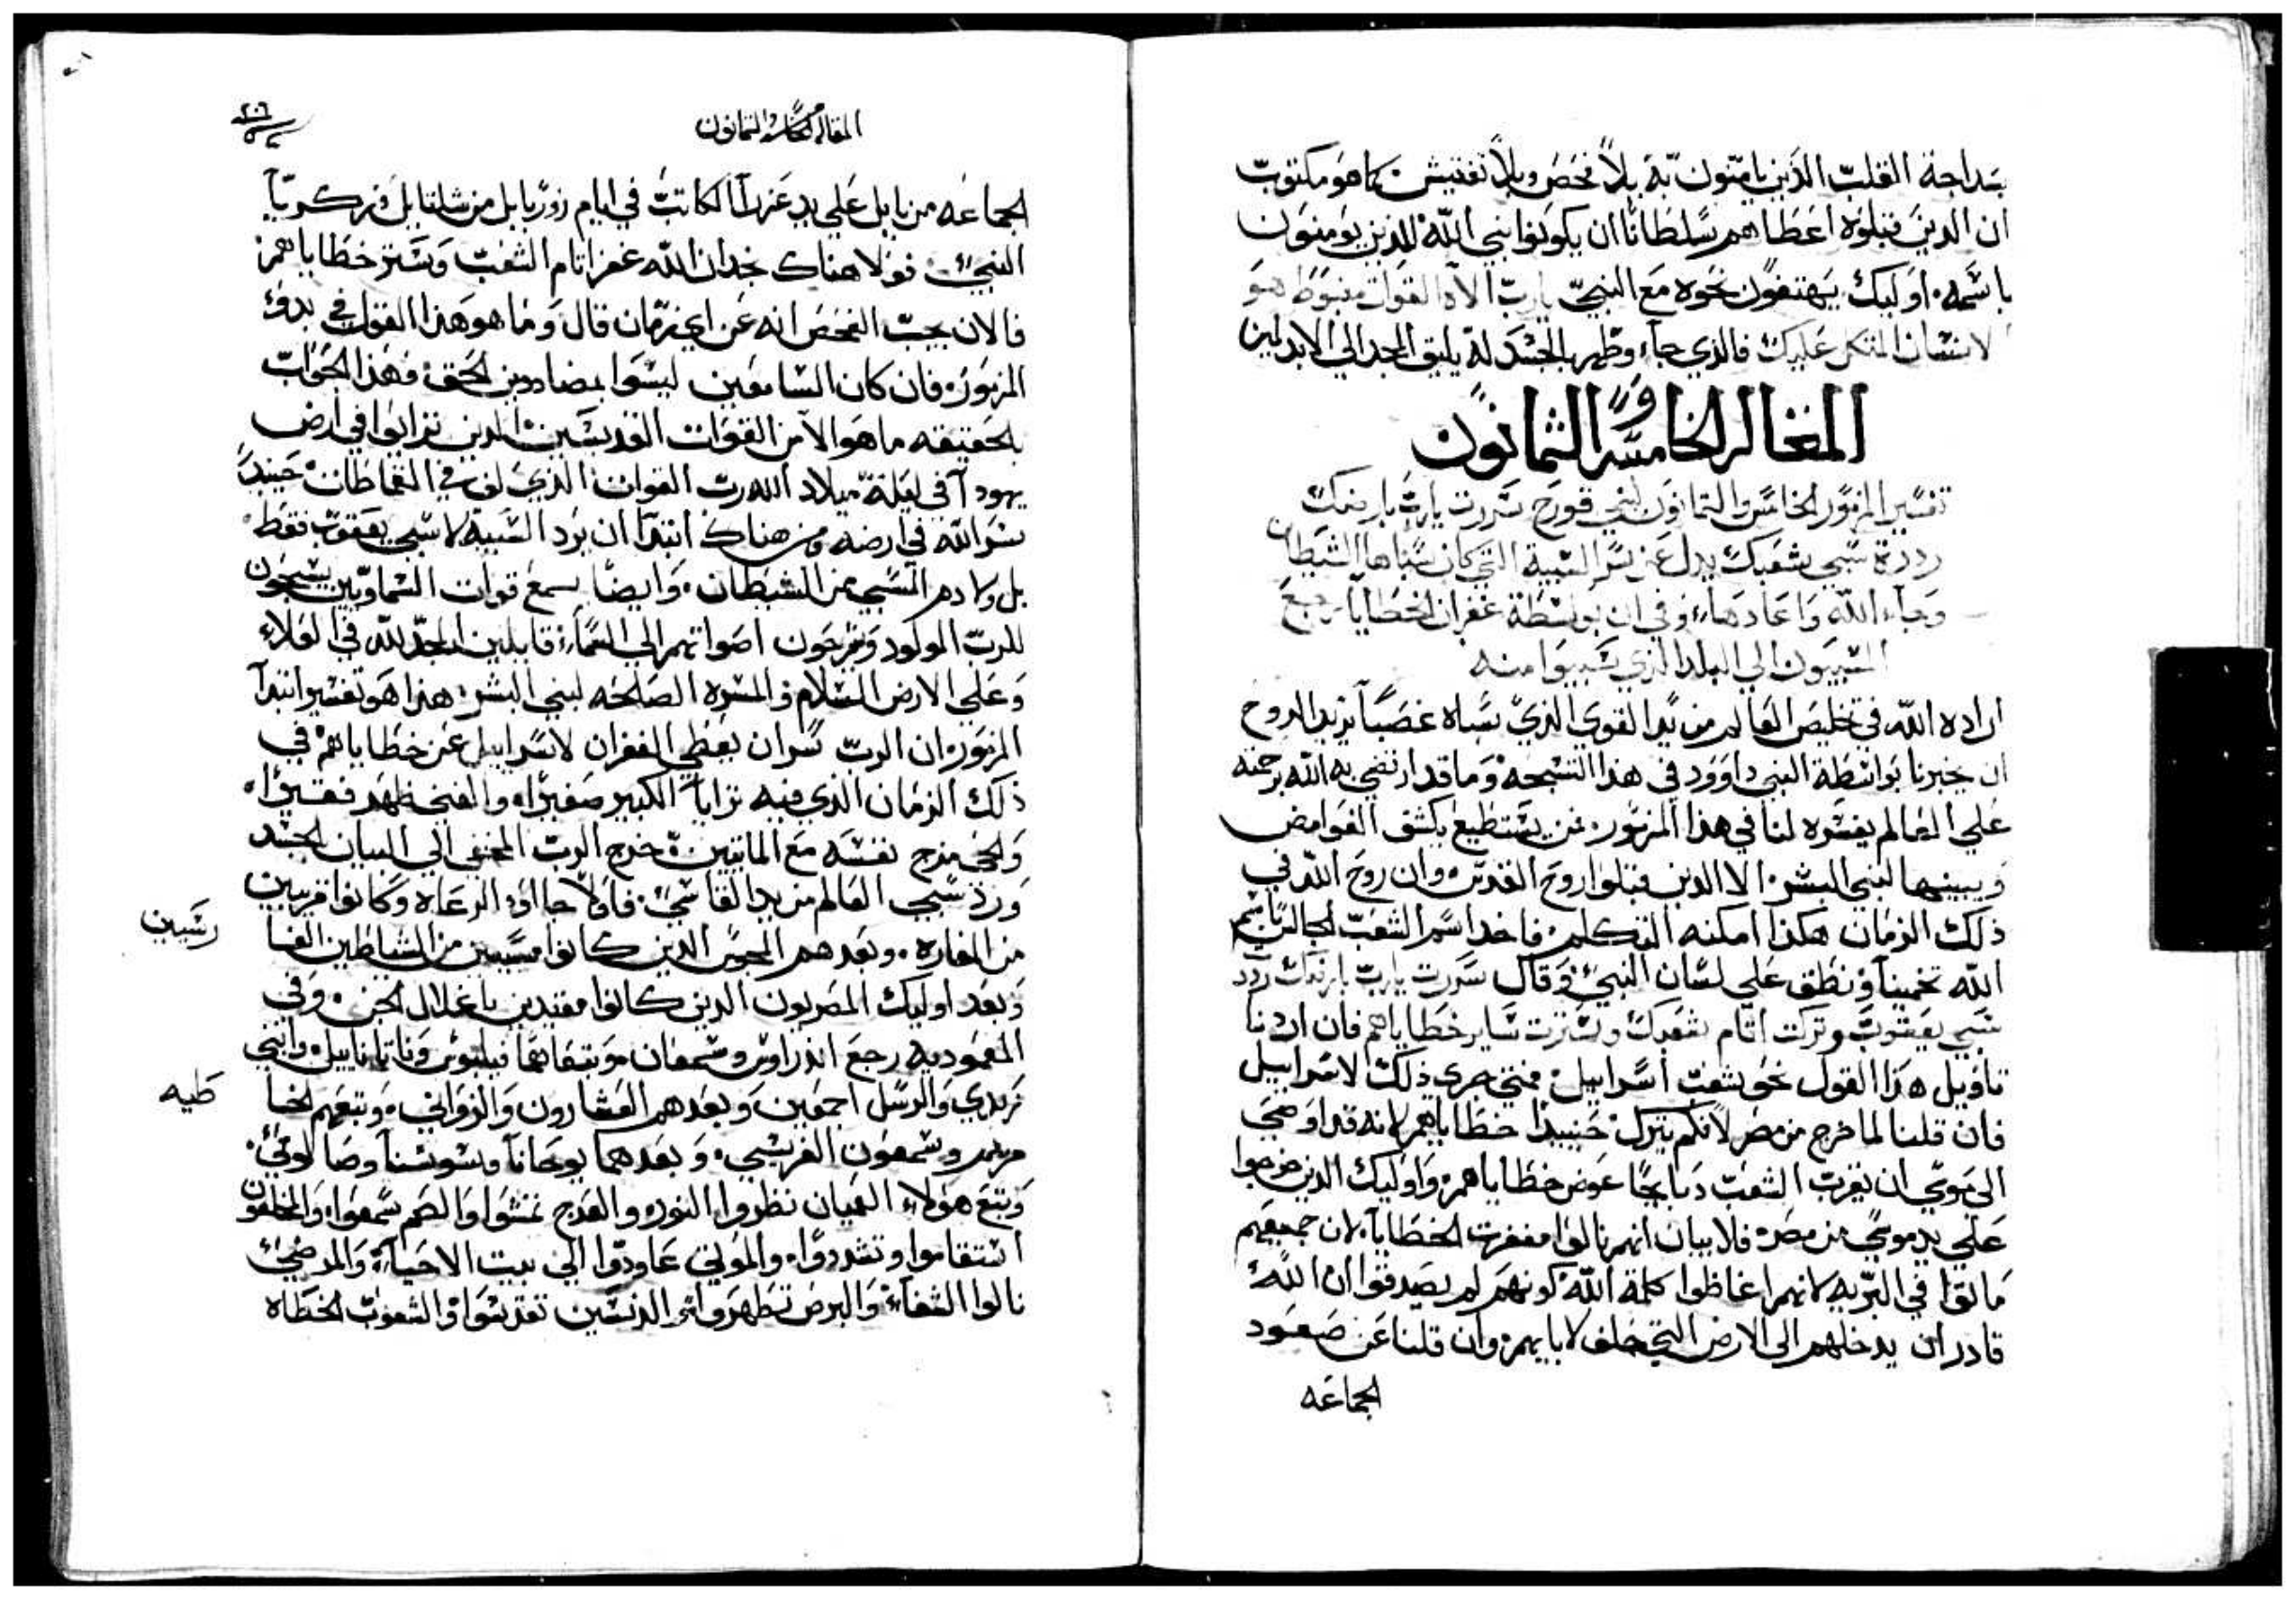 بسداجة القلب الذين يامنون به بلا فحص وبلا تفتيش كما هو مكتوب
ان الذين قبلوه اعطاهم سلطانا ان يكونوا بني الله للذين يومنون
باسمه اوليك يهتفون نحوه مع النبي يارب الاه القوات مغبوط هو
الانسان المتكل عليك فالذي جاء وظهر بالجسد له يليق المجد الي الابد امين
المقاله الخامسه والثمانون
تفسير المزمور الخامس والثمانون لبني قورح سررت يارب بارضك
رددة سبي شعبك يدل عن سر السبية التي كان سباها الشيطان
وجاء الله واعادها وفي ان بواسطة غفران الخطايا رجع
السبيون الي البلد الذي سبيوا منه
ارادة الله في تخليص العالم من يد القوي الذي سباه غصبا يريد الروح
ان يخبرنا بواسطة النبي داوود في هذا التسبحه وما قد ارتضي به الله برحمته
علي العالم يفسره لنا في هذا المزمور من يستطيع يكشف الغوامض
ويبينها لبني البشر الا الذين قبلوا روح القدس وان روح الله في
ذلك الزمان هكذا امكنه التكلم فاخد اسم الشعب الجالس باسم
الله تخمينا ونطق علي لسان النبي وقال سررت يارب بارضك ردد
سبي يعقوب وتركت اثام شعبك وسترت ساير خطاياهم فان اردنا
تاويل هذا القول نحو شعب اسراييل فمتي جري ذلك لاسراييل
فان قلنا لما خرج من مصر لانكم يترك حنييدا خطاياهم لانه قد اوصي
الي موسي ان يقرب الشعب دبايحا عوض خطاياهم واوليك الذين خرجوا
علي يد موسي من مصر فلا بيان انهم نالوا مغفرت الخطايا لان جميعهم
ماتوا في البريه لانهم اغاظوا كلمة الله كونهم لم يصدقوا ان الله
قادر ان يدخلهم الي الارض التي حلف لابايهم وان قلنا عن صعود
الجماعه
المقاله الخامسه والثمانون
٢٠٦
الجماعه من بابل علي يد عزرا الكاتب في ايام زوربابل من شلتايل وزكريا
النبي فولا هناك نجد ان الله غفر اثام الشعب وستر خطاياهم
فالان يجب الفحص انه عن اي زمان قال وما هو هذا القول في بدو
المزمور فان كان السامعين ليسوا بمضاددين الحق فهذا الجواب
بالحقيقه ما هو الا من القوات القديسين الذين تراايوا في ارض
يهودا في ليلة ميلاد الله رب القوات الذي لف في القماطات حينيدا
سر الله في ارضه ومن هناك ابتدا ان يرد السبية لا سبي يعقوب فقط
بل ولادهر المسبي من الشيطان وايضا يسمع قوات السماويين يسبحون
للرب المولود ويفرحون اصواتهم الي السماء قايلين المجد لله في العلاء
وعلي الارض السلام والمسره الصالحه لبني البشر هذا هو تفسير ابتدا
المزمور ان الرب سر ان يعطي الغفران لاسراييل عن خطاياهم في
ذلك الزمان الذي فيه ترايا الكبير صغيرا والغني ظهر فقيرا
والحي مزج نفسه مع المايتين خرج الرب المخفي الي البيان الجسد
ورد سبي العالم من يد القاسي فاولا جااو الرعاه وكانوا قريبين
من المغاره وبعدهم المجوس الذين كانوا مسبيين من الشياطين القسا
رسيين
وبعد اوليك المصريون الذين كانوا مقيدين باغلال الجن وفي
المعموديه رجع اندراوس وسمعان وتبعاهما فيلبوس وناتاناييل وابني
زبدي والرسل اجمعين وبعدهم العشارون والزواني وتبعهم الخا
طيه
مريم وسمعون الفريسي وبعدهما يوحانا وسوسنا وصالوني
وتبع هولاء العميان نظروا النور والعرج تمشوا والصم سمعوا والمخلعون
استقاموا وتشددوا والموتي عاودوا الي بيت الاحياء والمرضي
نالوا الشفاء والبرص تطهروا والدنسين تقدسوا والشعوب الخطاه